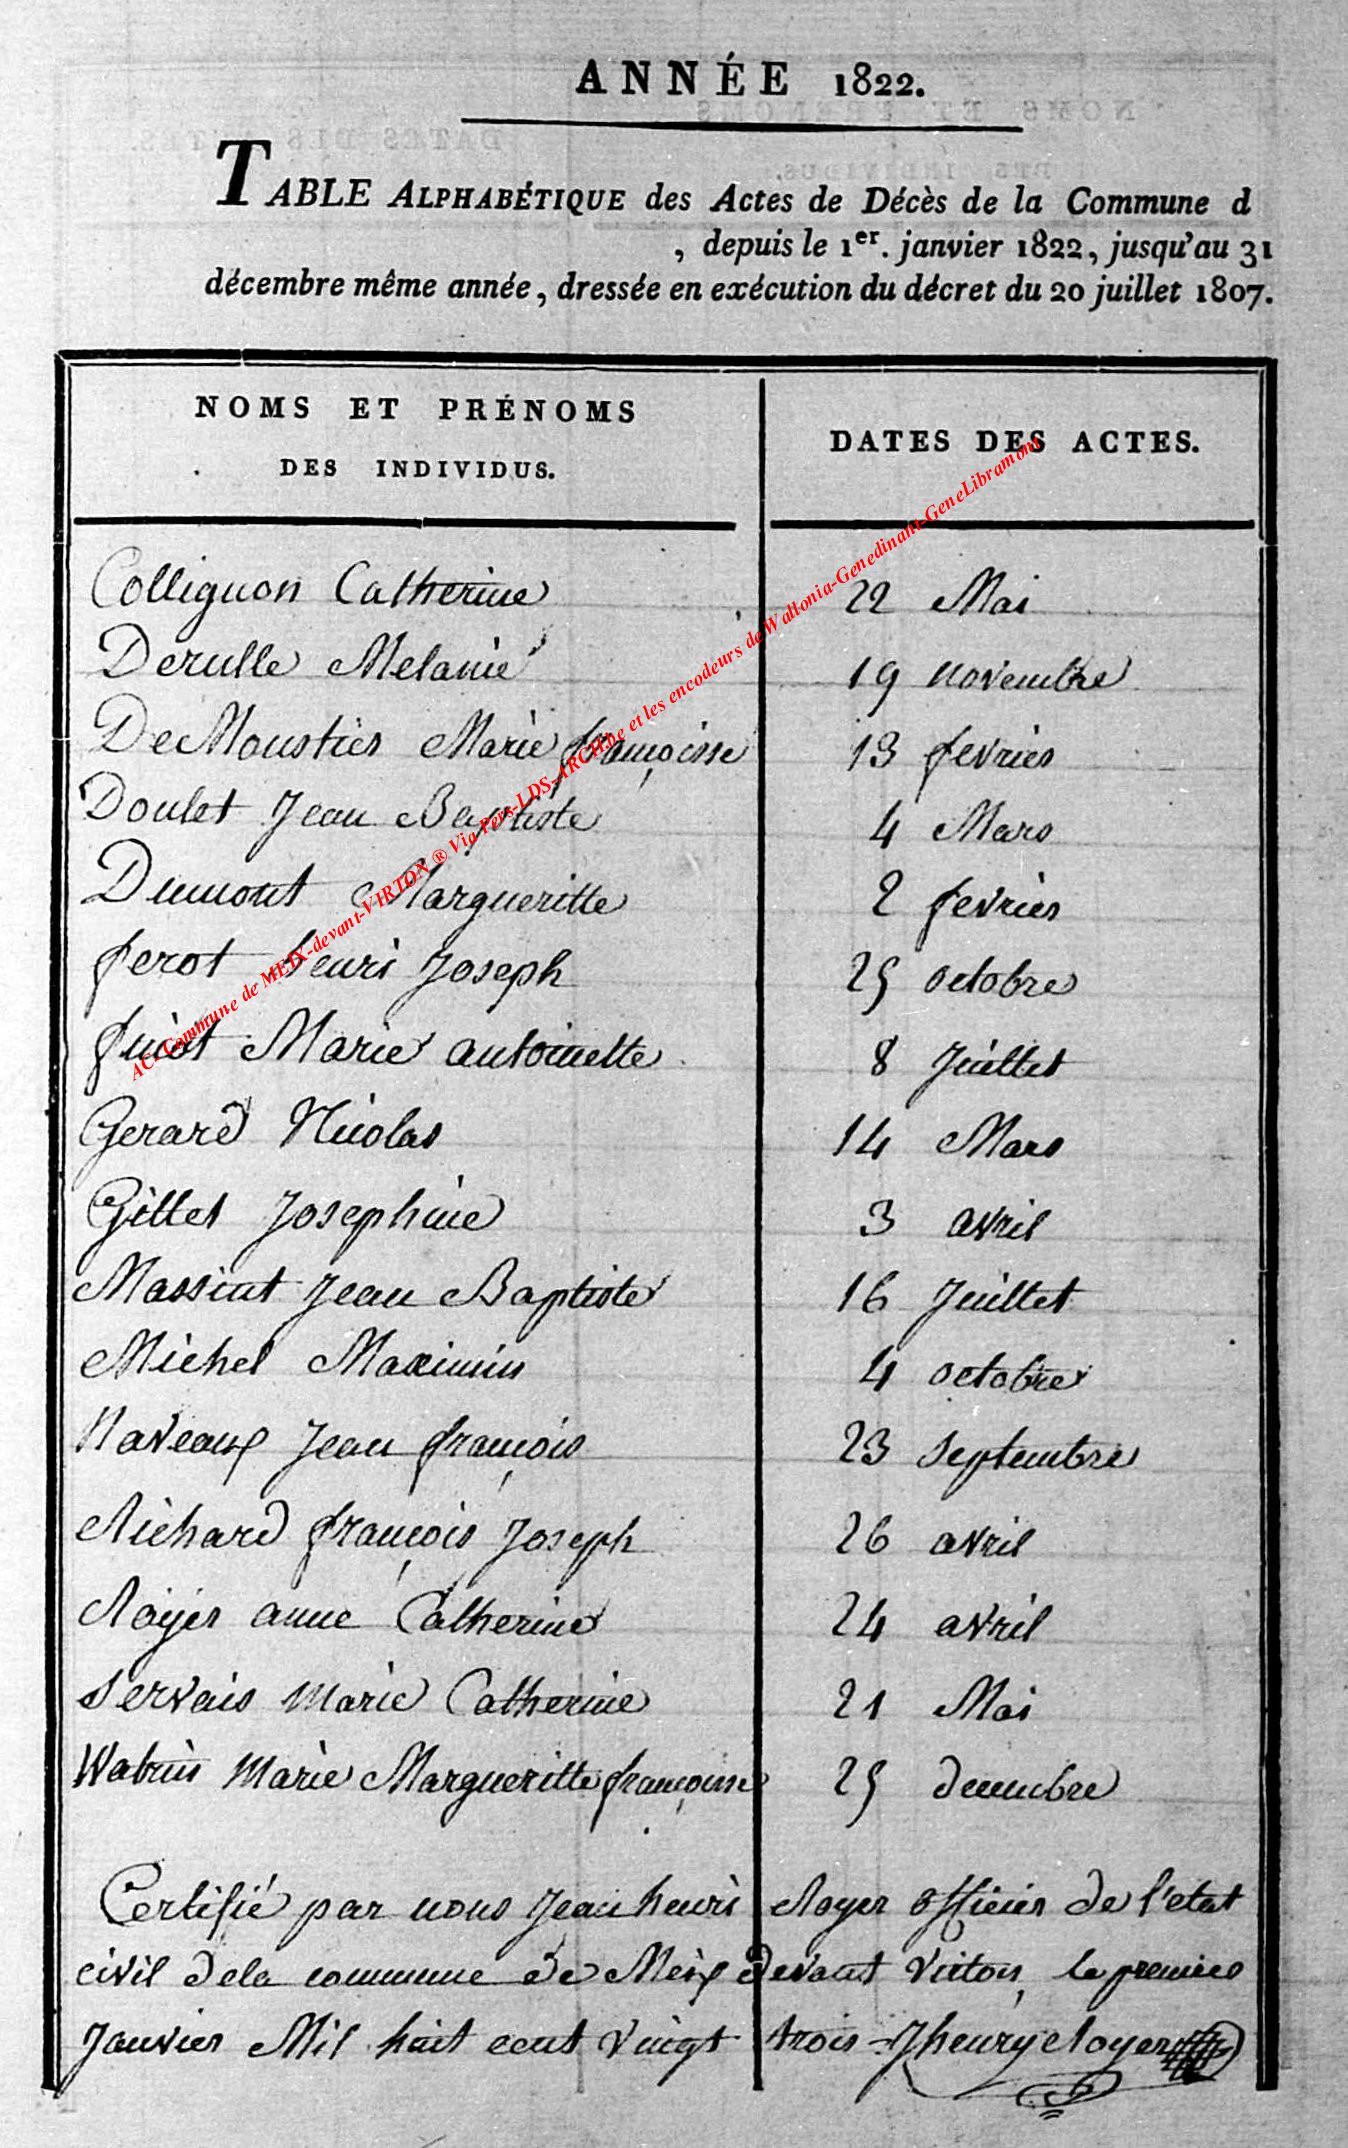 ANNÉE 1822.
TABLE ALPHABÉTIQUE des Actes de Décès de la Commune d
, depuis le 1er. janvier 1822, jusqu'au 31
décembre même année, dressée en exécution du décret du 20 juillet 1807.
NOMS ET PRÉNOMS
DES INDIVIDUS.
DATES DES ACTES.
Collignon Catherine 22 Mai
Derulle Melanie 19 novembre
DeMoustier Marie françoisse 13 fevrier
Doulet Jean Baptiste 4 Mars
Dumont Margueritte 2 fevrier
ferot henri Joseph 25 octobre
Marie antoinette 8 Juillet
Gerard Nicolas 14 Mars
Gillet Josephine 3 avril
Massint Jean Baptiste 16 Juillet
Michel Maximin 4 octobre
Naveaux Jean françois 23 septembre
Richard françois Joseph 26 avril
Royer anne Catherine 24 avril
Servais Marie Catherine 21 Mai
Watrin Marie Margueritte françoisse 25 decembre
Certifié par nous Jean henri Royer officier de l'etat
civil dela commune de Meix devant Virton, le premier
Janvier Mil huit cent vingt trois - Jhenry Royer
AC-Commune de MEIX-devant-VIRTON ® Via Pers-LDS-ARCH.be et les encodeurs de Wallonia-Genedinant-GeneLibramont